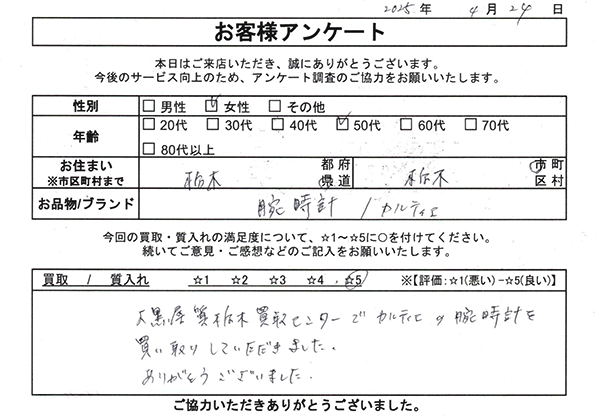 2025 年 4 月 24 日
お客様アンケート
本日はご来店いただき、誠にありがとうございます。
今後のサービス向上のため、アンケート調査のご協力をお願いいたします。
性別 □ 男性 ☑ 女性 □ その他
年齢 □ 20代 □ 30代 □ 40代 ☑ 50代 □ 60代 □ 70代
□ 80代以上
お住まい ※市区町村まで 栃木 都府県道 栃木 市町区村
お品物/ブランド 腕時計 / カルティエ
今回の買取・質入れの満足度について、☆1~☆5に○を付けてください。
続いてご意見・ご感想などのご記入をお願いいたします。
買取 / 質入れ ☆1 ☆2 ☆3 ☆4 ☆5 ※【評価:☆1(悪い)-☆5(良い)】
大黒屋質栃木買取センターでカルティエの腕時計を
買い取りしていただきました。
ありがとうございました。
ご協力いただきありがとうございました。